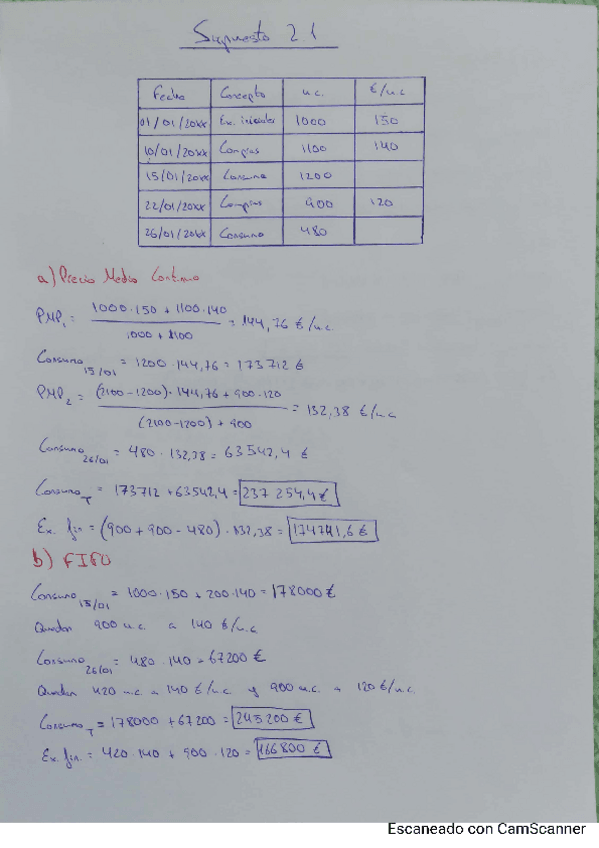 Supuesto 2.1
Fecha Concepto u.c. €/u.c
01/01/20xx Ex. iniciales 1000 150
10/01/20xx Compras 1100 140
15/01/20xx Consumo 1200
22/01/20xx Compras 900 120
26/01/20xx Consumo 480
a) Precio Medio Continuo
PMP₁ = (1000·150 + 1100·140) / (1000 + 1100) = 144,76 €/u.c
Consumo 15/01 = 1200 · 144,76 = 173712 €
PMP₂ = ((2100-1200)·144,76 + 900·120) / ((2100-1200) + 900) = 132,38 €/u.c
Consumo 26/01 = 480 · 132,38 = 63542,4 €
Consumo T = 173712 + 63542,4 = 237 254,4 €
Ex. fin = (900 + 900 - 480) · 132,38 = 174741,6 €
b) FIFO
Consumo 15/01 = 1000·150 + 200·140 = 178000 €
Quedan 900 u.c. a 140 €/u.c
Consumo 26/01 = 480 · 140 = 67200 €
Quedan 420 u.c. a 140 €/u.c y 900 u.c. a 120 €/u.c.
Consumo T = 178000 + 67200 = 245200 €
Ex. fin. = 420·140 + 900·120 = 166800 €
Escaneado con CamScanner